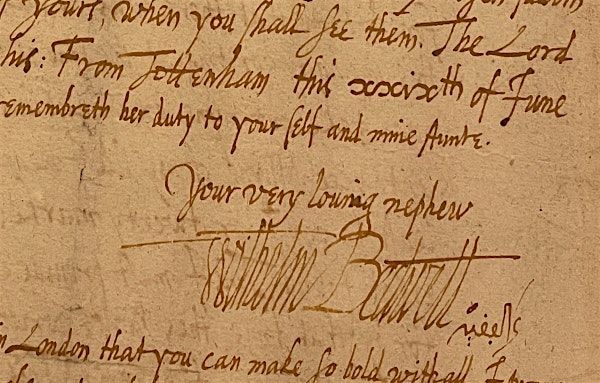 yours, when you shall see them. The Lord
his: From Tottenham this xxixth of June
remembreth her duty to your self and mine Aunte.
Your very loving nephew
Wilhelm Bedwell
in London that you can make so bold withall